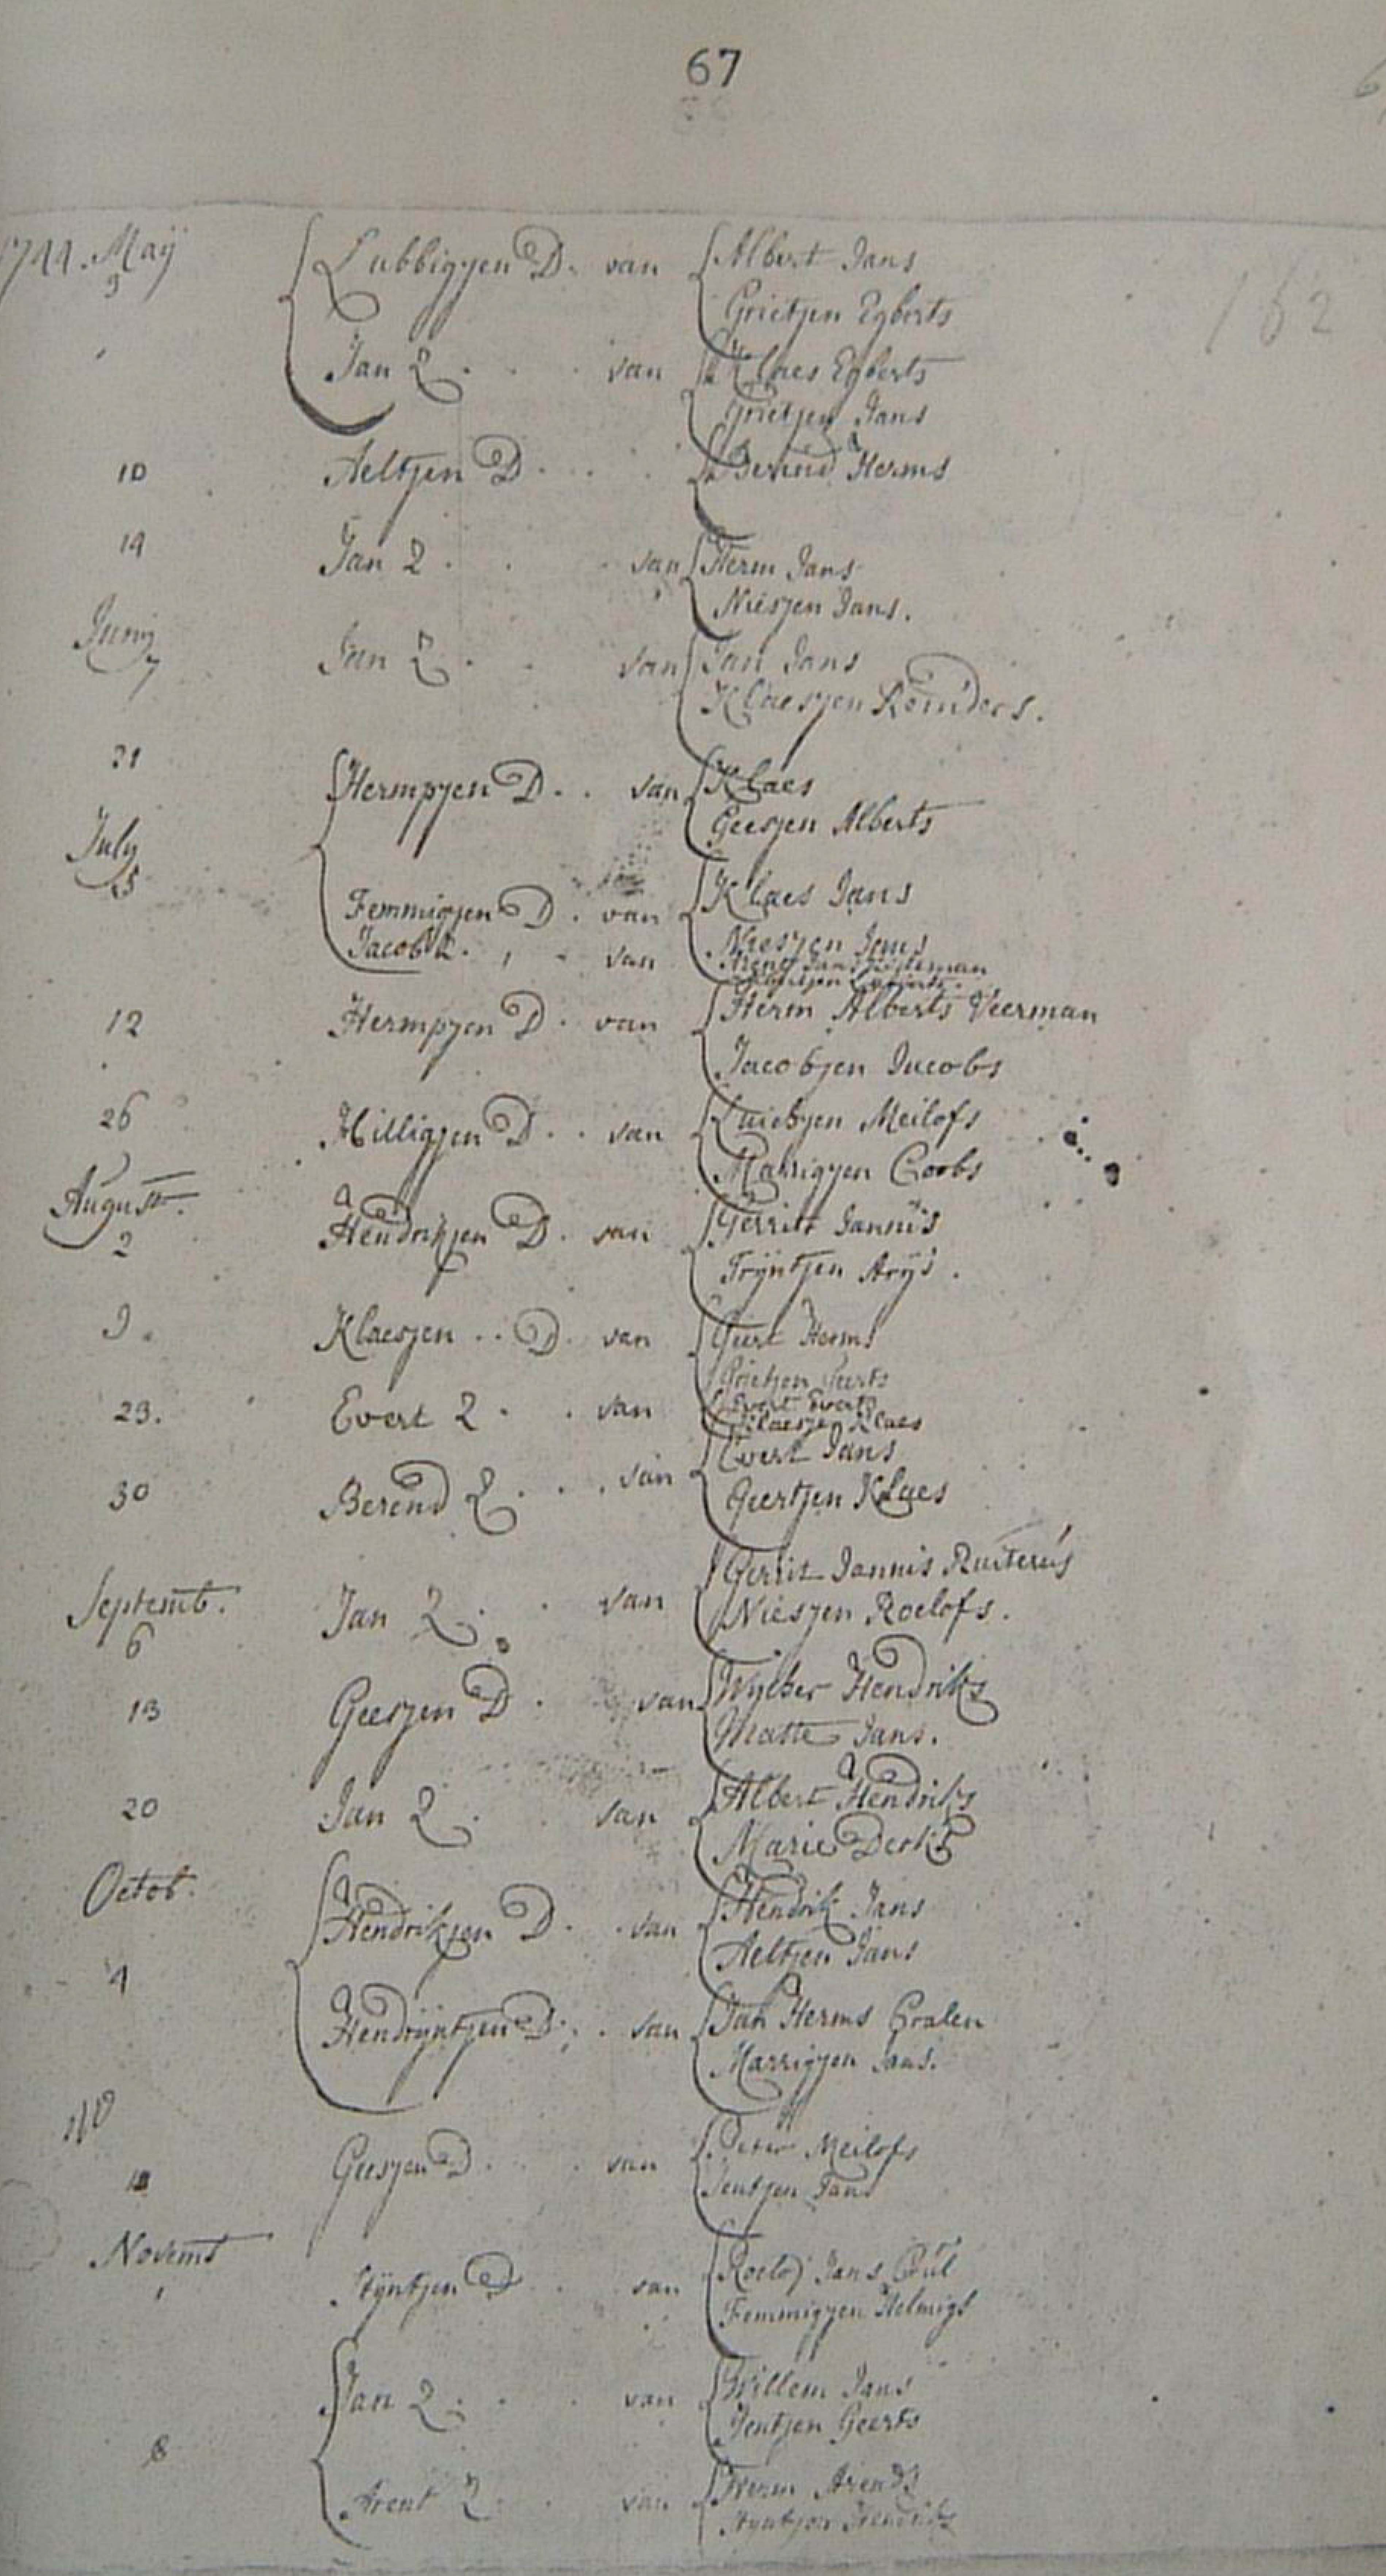 67
1744. Maÿ
3
Lubbigjen D. van Albert Jans
Grietjen Egberts
Jan Z. van Klaes Egberts
Grietjen Jans
162
10 Aeltjen D. Berend Herms
14 Jan Z. van Herm Jans
Niesjen Jans.
Junij
7 Jan Z. van Jan Jans
Klaesjen Reinders.
21 Hermpjen D. van Klaes
Geesjen Alberts
July
5
Femmigjen D. van Klaes Jans
Niesjen Jans
Jacob Z. van Arend Jans
12 Hermpjen D. van Herm Alberts Veerman
Jacobjen Jacobs
26 Hilligjen D. van Luichjen Meilofs
Marrigjen Coobs
August.
2 Hendrikjen D. van Gerrit Jannis
Trÿntjen Arÿs.
9. Klaesjen D. van Geert Herms
Grietjen Geerts
23. Evert Z. van Evert Everts
Klaesjen Klaes
30 Berend Z. van Evert Jans
Geertjen Klaes
Septemb.
6 Jan Z. van Gerrit Jannis Ruiterus
Niesjen Roelofs.
13 Geesjen D. van Wycher Hendriks
Matte Jans.
20 Jan Z. van Albert Hendriks
Marie Derks
Octob.
4
Hendrikjen D. van Hendrik Jans
Aeltjen Jans
Hendrÿntjen D. van Jan Herms Gralen
Marrigjen Jans.
Geesjen D. van Peter Meilofs
Jentjen Jans
Novemb
1 Stÿntjen D. van Roelof Jans Bul
Femmigjen Helmigs
8
Jan Z. van Willem Jans
Jentjen Geerts
Arent Z. van Herm Arends
Stÿntjen Hendriks